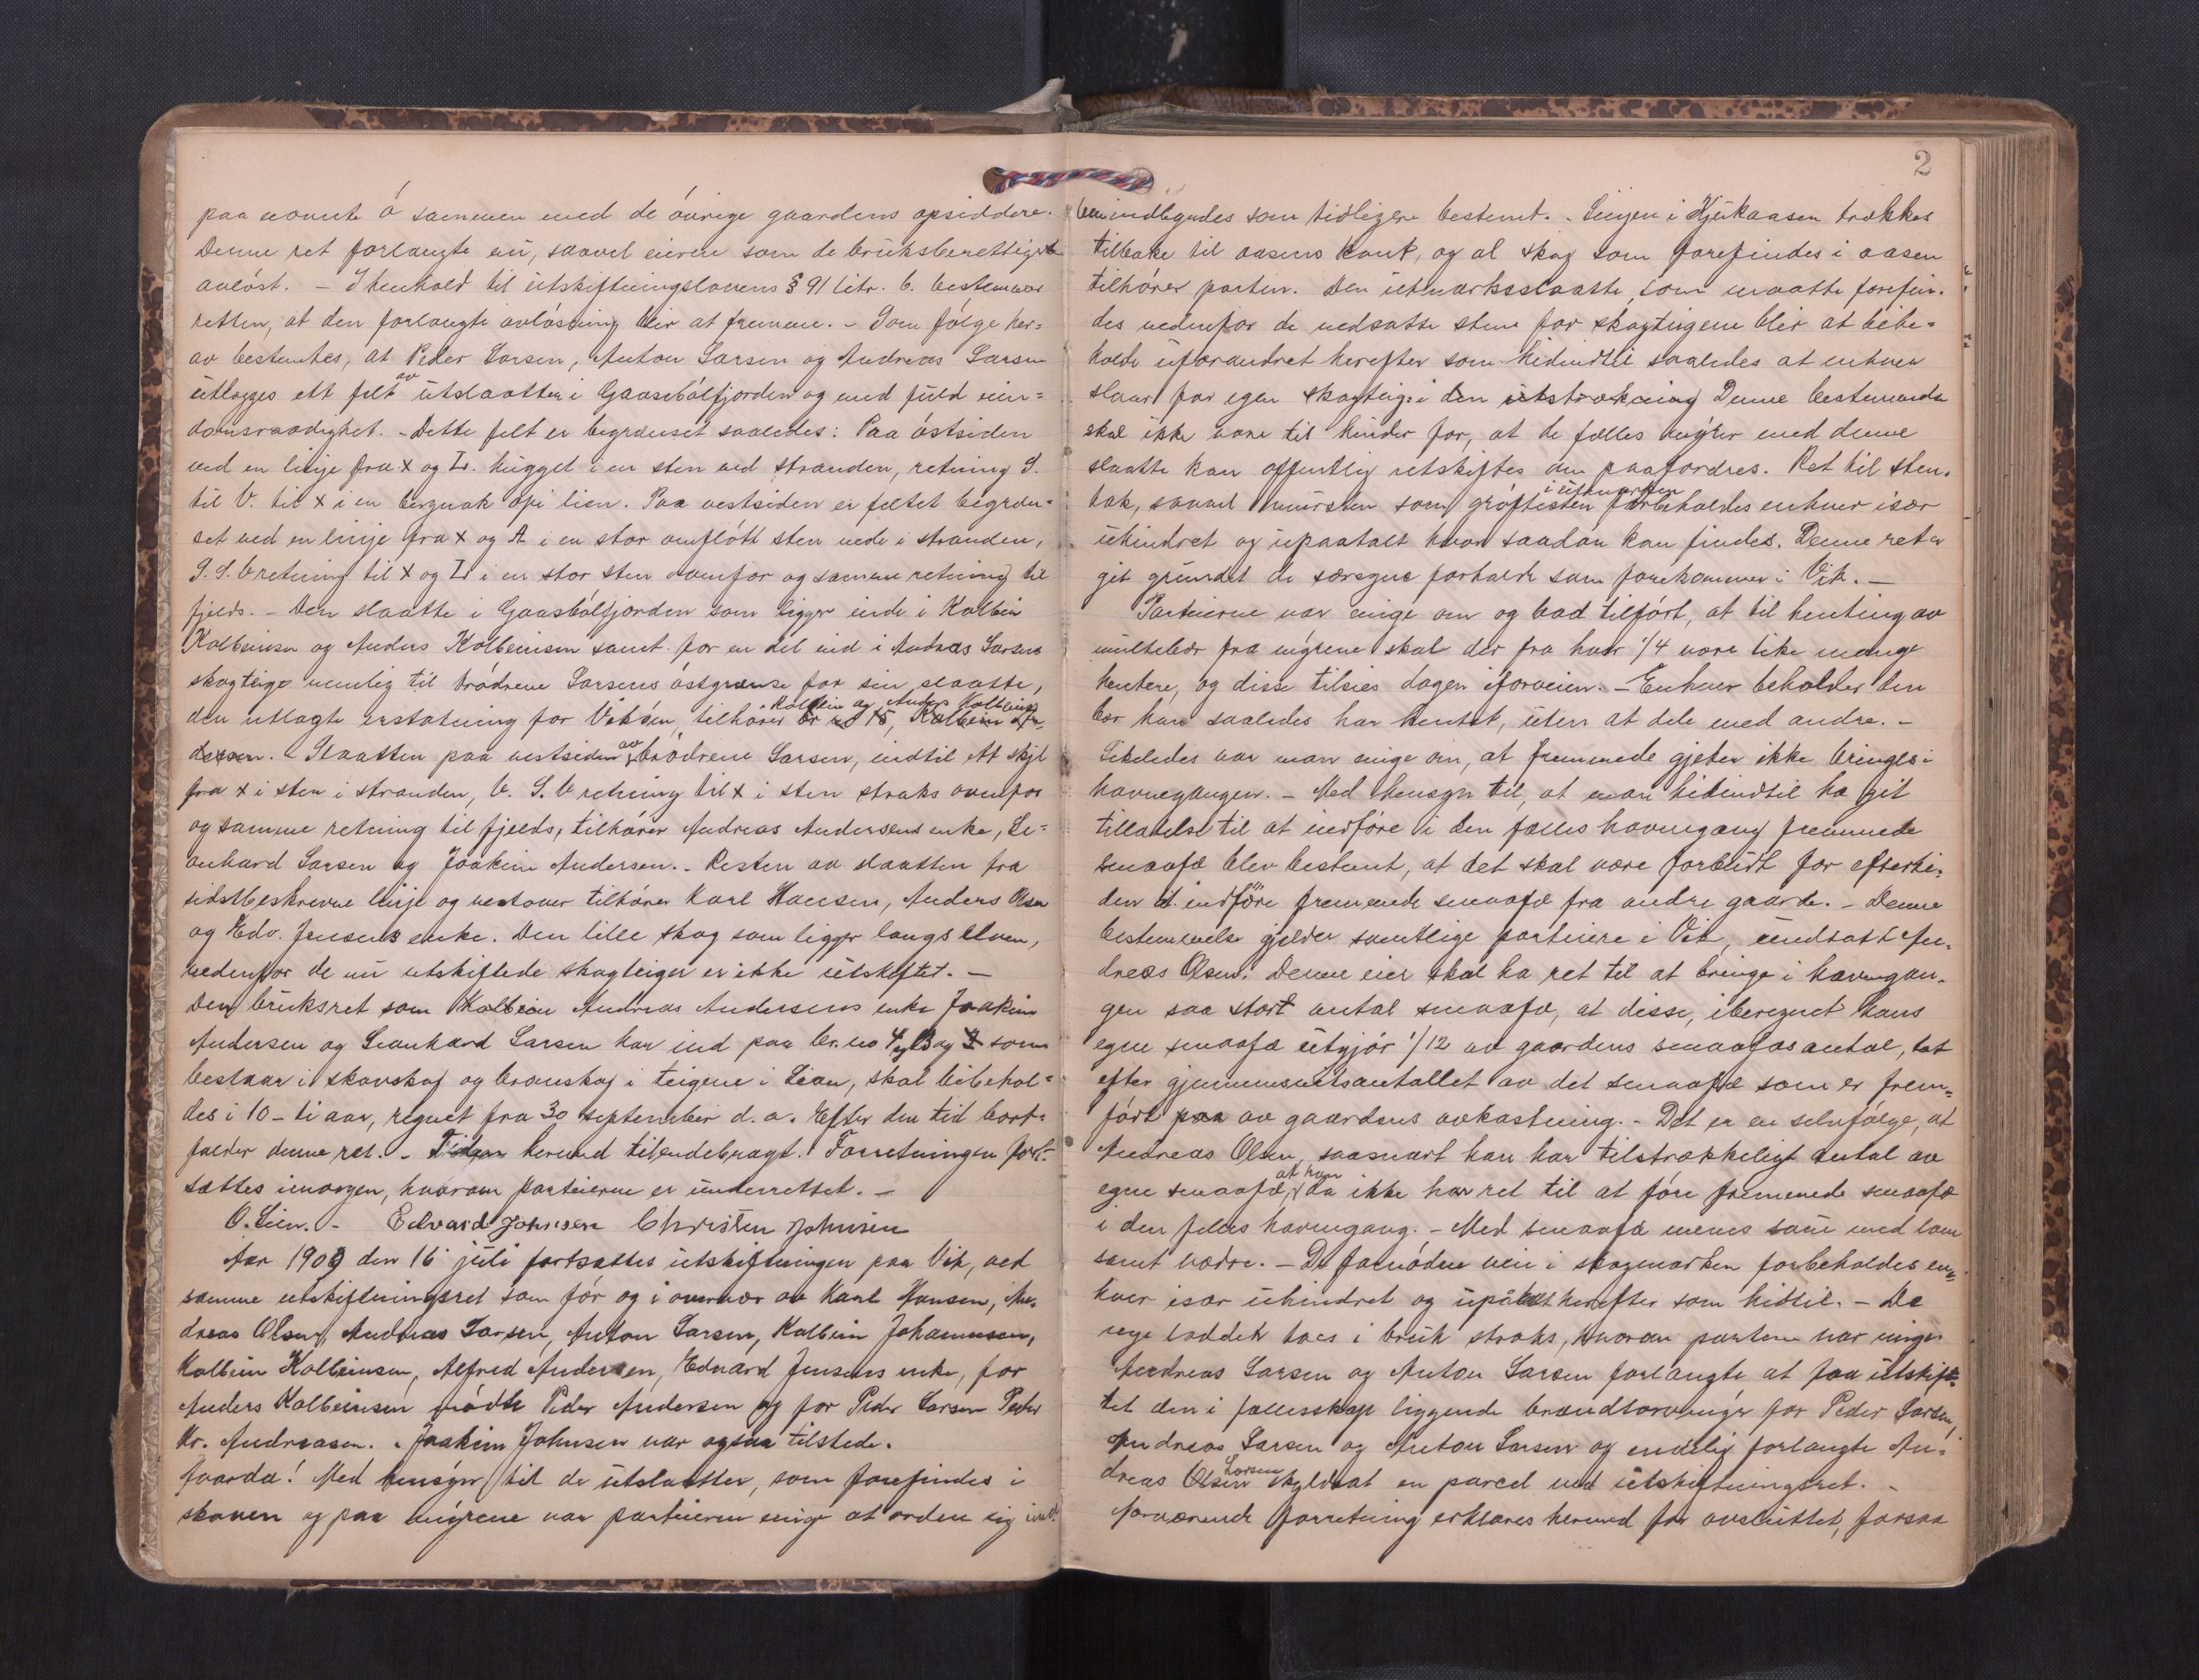 paa nævnte ö sammen med de övrige gaardens opsiddere.
Denne ret forlangte nu, saavel eierne som de bruksberettigede
avlöst. – I henhold til utskiftningslovens § 91 litr. b. bestemmer
retten, at den forlangte avlösning blir at fremme. – Som fölge her=
av bestemtes, at Peder Larsen, Anton Larsen og Andreas Larsen
utlægges ett felt av utslaatten i Gaasebölfjorden og med fuld eien=
domsraadighet. – Dette felt er begrænset saaledes: Paa östsiden
ved en linje fra X og L. hugget i en sten ved stranden, retning S.
til V. til X i en bergnak opi lien. Paa vestsiden er feltet begræn=
set ved en linje fra X og A i en stor omflött sten nede i stranden,
S. S. V retning til X og L i en stor sten ovenfor og samme retning til
fjelds. – Den slaatte i Gaasbölfjorden som ligger inde i Kolbein
Kolbeinsen og Anders Kolbeinsen samt for en del ind i Andreas Larsens
skogteige nemlig til brödrene Larsens östgrænse for sin slaatte,
den utlagte erstatning for Viksöen, tilhörer Kolbein og Anders Kolbeins br no 15, Kolbein An-
dersen. Slaatten paa vestsiden av brödrene Larsen, indtil ett skjel
fra X i sten i stranden, V. S. V retning til X i sten straks ovenfor
og samme retning til fjelds, tilhörer Andreas Andersens enke, Le=
onhard Larsen og Joakim Andersen. – Resten av slaatten fra
sidstbeskrevne linje og vestover tilhörer Karl Hansen, Anders Olsen
og Edv. Jensens enke. Den lille skog som ligger langs elven,
nedenfor de nu utskiftede skogteiger er ikke utskiftet. –
Den bruksret som Kolbein Andreas Andersens enke Joakim
Andersen og Leonhard Larsen har ind paa br. no 4, 13 og 3 som
bestaar i skavskog og brænskog i teigene i Lien, skal bibehol=
des i 10 – ti aar, regnet fra 30 september d. a. Efter den tid bort=
falder denne ret. – Tiden herved tilendebragt. Forretningen fort=
sættes imorgen, hvorom parteierne er underrettet. –
O. Lien. – Edvard Johnsen Christen Johnsen
Aar 1909 den 16 juli fortsattes utskiftningen paa Vik, ved
samme utskiftningsret som för og i overvær av Karl Hansen, An-
dreas Olsen, Andreas Larsen, Anton Larsen, Kolbein Johannesen,
Kolbein Kolbeinsen, Alfred Andersen, Edvard Jensens enke, for
Anders Kolbeinsen mödte Peder Andersen og for Peder Larsen Peder
Kr. Andreasen. – Joakim Johnsen var ogsaa tilstede.
Foarda! Med hensyn til de utslaatter, som forefindes i
skoven og paa myrene var parteierne enige at ordne sig ind.
2
byrdes som tidligere bestemt. – Linjen i Hjukaasen trækkes
tilbake til aasens kant, og al skog som forefindes i aasen
tilhörer parten. Den utmarksslaatte, som maatte forefin-
des nedenfor de nedsatte stene for skogteigene blir at bibe=
holde uforandret herefter som hidindtil saaledes at enhver
slaar for egen skogteig i den utstrækning Denne bestemmelse
skal ikke være til hinder for, at de fælles myrer med denne
slaatte kan offentlig utskiftes om paafordres. Ret til sten-
tak, saavel mursten som gröftesten i utmarken forbeholdes enhver især
uhindret og upaatalt hvor saadan kan findes. Denne ret er
git grundet de særegne forholde som forekommer i Vik. –
Parteierne var enige om og bad tilfört, at til henting av
multebær fra myrene skal der fra hver 1/4 være like mange
hentere, og disse tilsies dagen iforveien. – Enhver beholder den
bær han saaledes har hentet, uten at dele med andre. –
Likeledes var man enige om, at fremmede gjeter ikke bringes i
havnegangen. – Med hensyn til, at man hidindtil ha git
tilladelse til at indföre i den fælles havnegang fremmede
smaafæ blev bestemt, at det skal være forbudt for efterti-
den at indföre fremmede smaafæ fra andre gaarde. – Denne
bestemmelse gjelder samtlige parteiere i Vik, undtatt An-
dreas Olsen. Denne eier skal ha ret til at bringe i havnegan-
gen saa stort antal smaafæ, at disse, iberegnet hans
egne smaafæ utgjör 1/12 av gaardens smaafæs antal, tat
efter gjennemsnitsantallet av det smaafæ som er frem-
fört paa av gaardens avkastning. – Det er en selvfölge, at
Andreas Olsen, saasnart han har tilstrækkeligt antal av
egne smaafæ, at han da ikke har ret til at före fremmede smaafæ
i den fælles havnegang. – Med smaafæ menes sau med lam
samt vædre. – De fornödne veie i skogmarken forbeholdes en-
hver især uhindret og upåtalt herefter som hidtil. – De
nye lodder toes i bruk straks, hvorom parterne var enige.
Andreas Larsen og Anton Larsen forlangte at faa utskif-
tet den i fællesskap liggende brændtorvmyr for Peder Larsen,
Andreas Larsen og Anton Larsen og endelig forlangte An=
dreas Olsen Larsen skyldsat en parcel ved utskiftningsret. –
Nærværende forretning erklæres herved for avsluttet, forsaa